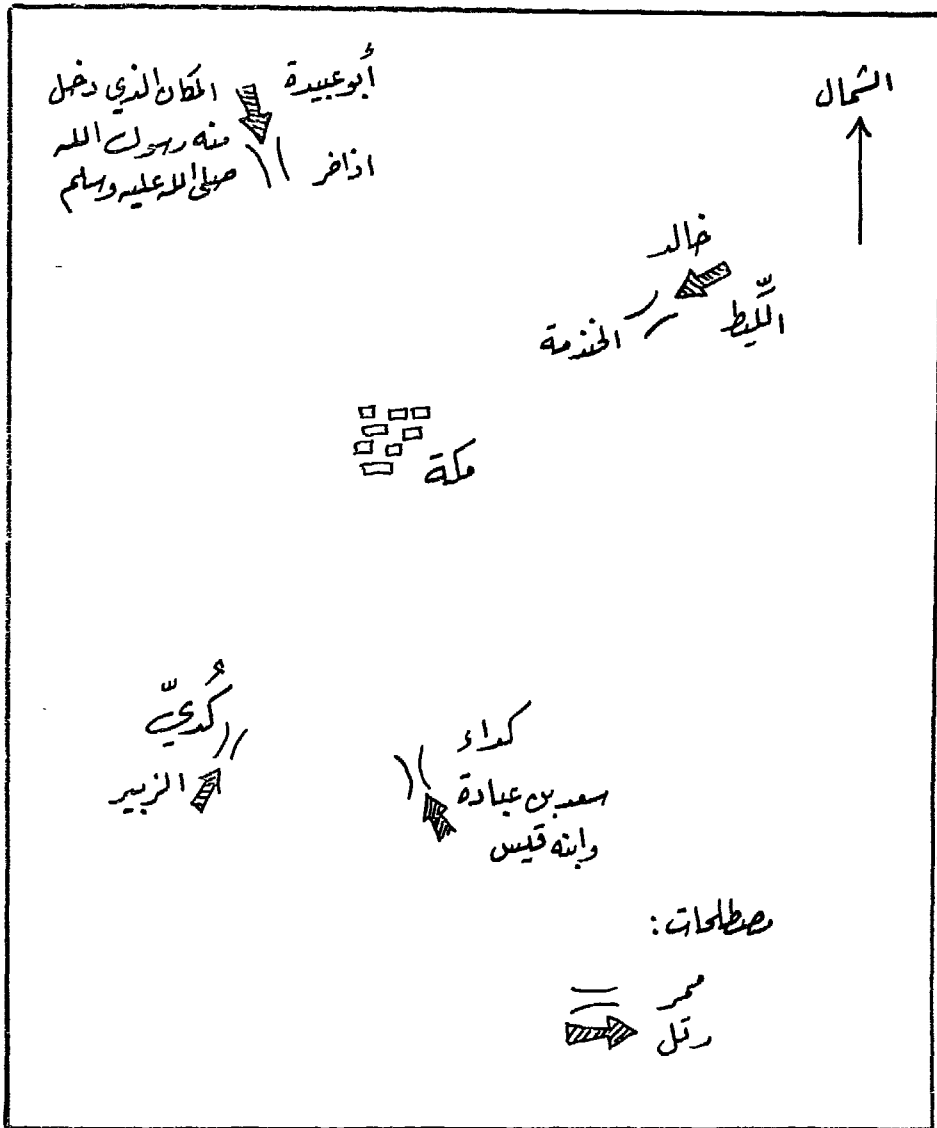 الشمال
أبو عبيدة
اذاخر
المكان الذي دخل
منه رسول الله
صلى الله عليه وسلم
خالد
الليّط
الخندمة
مكة
كُديّ
الزبير
كداء
سعد بن عبادة
وابنه قيس
مصطلحات:
ممر
رتل